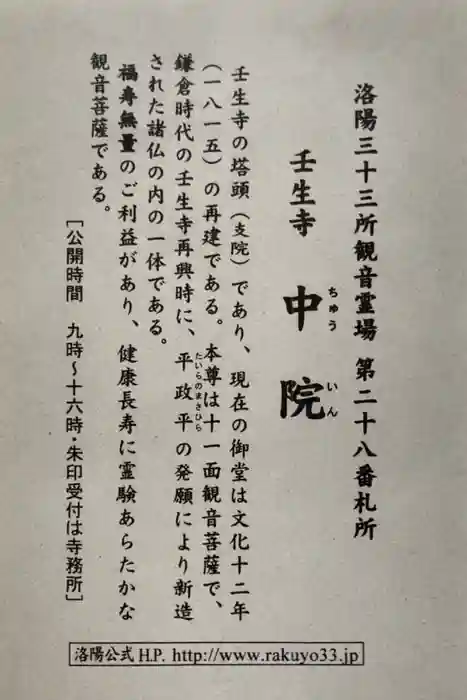 洛陽三十三所観音霊場 第二十八番札所
壬生寺 中院
ちゅう いん
壬生寺の塔頭（支院）であり、現在の御堂は文化十二年
（一八一五）の再建である。本尊は十一面観音菩薩で、
鎌倉時代の壬生寺再興時に、平政平の発願により新造
たいらのまさひら
された諸仏の内の一体である。
福寿無量のご利益があり、健康長寿に霊験あらたかな
観音菩薩である。
［公開時間 九時～十六時・朱印受付は寺務所］
洛陽公式 H.P. http://www.rakuyo33.jp